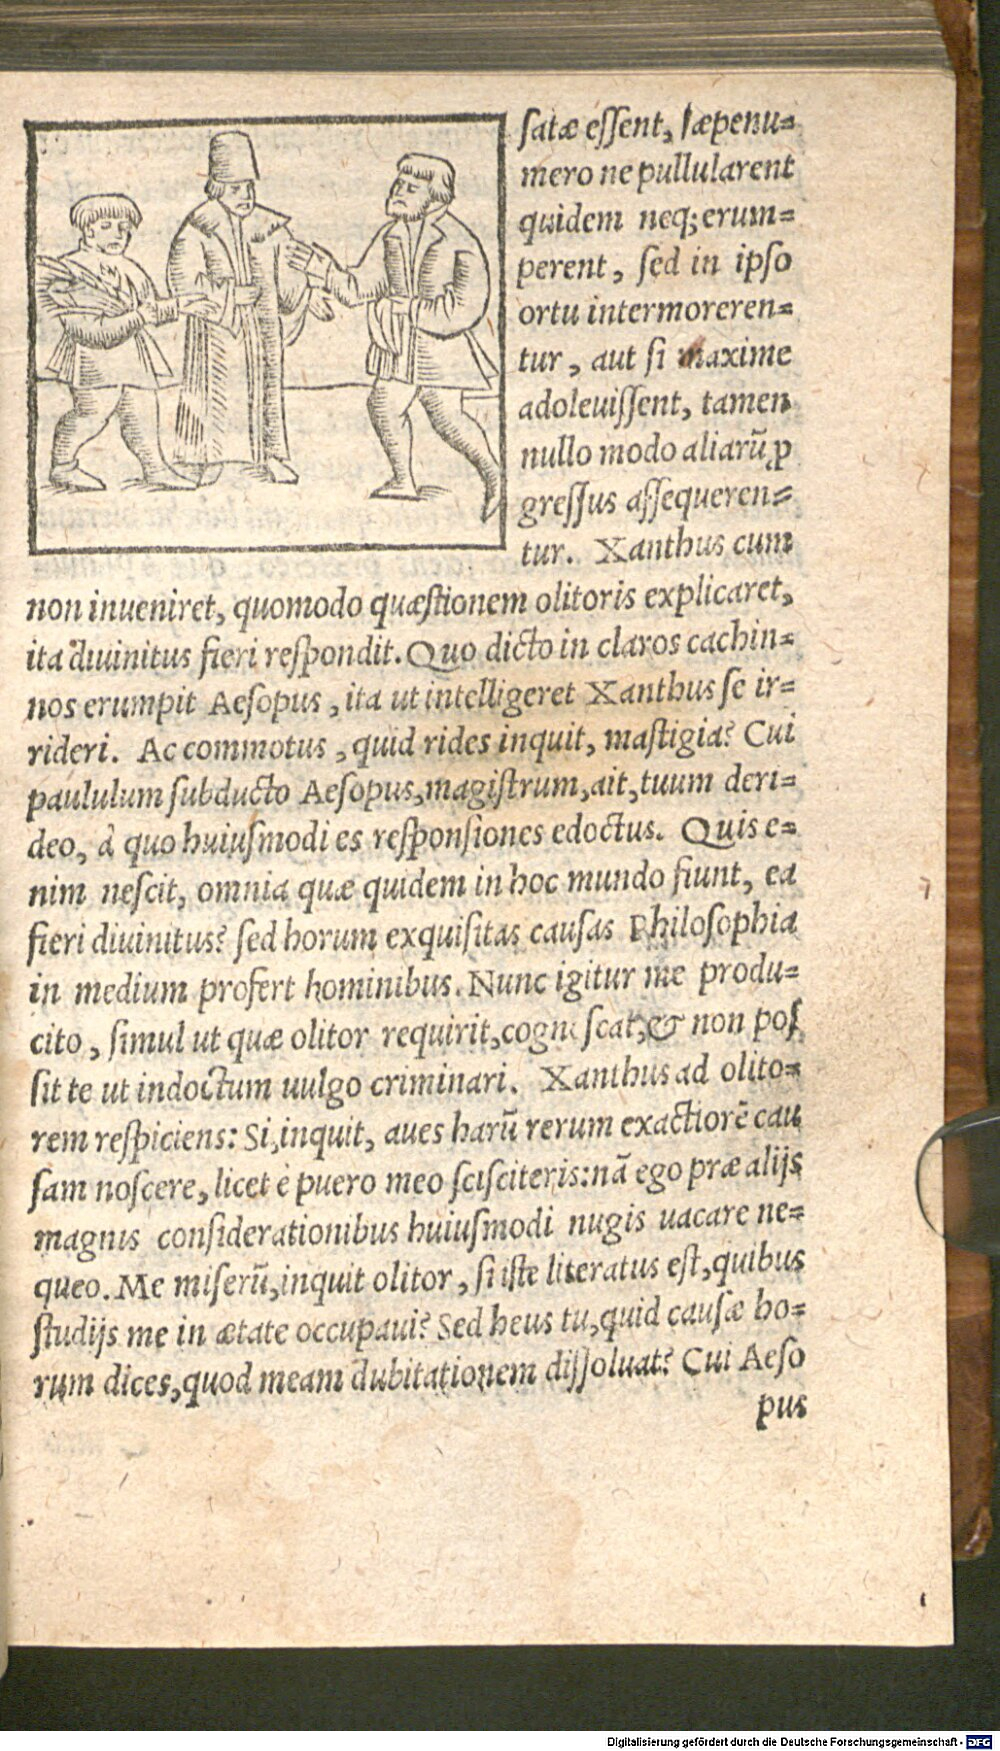 ſatæ eſſent, ſæpenu=
mero ne pullularent
quidem neq; erum=
perent, ſed in ipſo
ortu intermoreren=
tur, aut ſi maxime
adoleuiſſent, tamen
nullo modo aliarũ ꝓ
greſſus aſſequeren=
tur. Xanthus cum
non inueniret, quomodo quæſtionem olitoris explicaret,
ita diuinitus fieri reſpondit. Quo dicto in claros cachin=
nos erumpit Aeſopus, ita ut intelligeret Xanthus ſe ir=
rideri. Ac commotus, quid rides inquit, maſtigia? Cui
paululum ſubducto Aeſopus, magiſtrum, ait, tuum deri=
deo, à quo huiuſmodi es reſponſiones edoctus. Quis e=
nim neſcit, omnia quæ quidem in hoc mundo fiunt, ea
fieri diuinitus? ſed horum exquiſitas cauſas Philoſophia
in medium profert hominibus. Nunc igitur me produ=
cito, ſimul ut quæ olitor requirit, cognoſcat, & non poſ
ſit te ut indoctum uulgo criminari. Xanthus ad olito=
rem reſpiciens: Si, inquit, aues harũ rerum exactiorẽ cau
ſam noſcere, licet è puero meo ſciſciteris: nã ego præ alijs
magnis conſiderationibus huiuſmodi nugis uacare ne=
queo. Me miſerũ, inquit olitor, ſi iſte literatus eſt, quibus
ſtudijs me in ætate occupaui? Sed heus tu, quid cauſæ ho=
rum dices, quod meam dubitationem diſſoluat? Cui Aeſo
pus
Digitalisierung gefördert durch die Deutsche Forschungsgemeinschaft - DFG